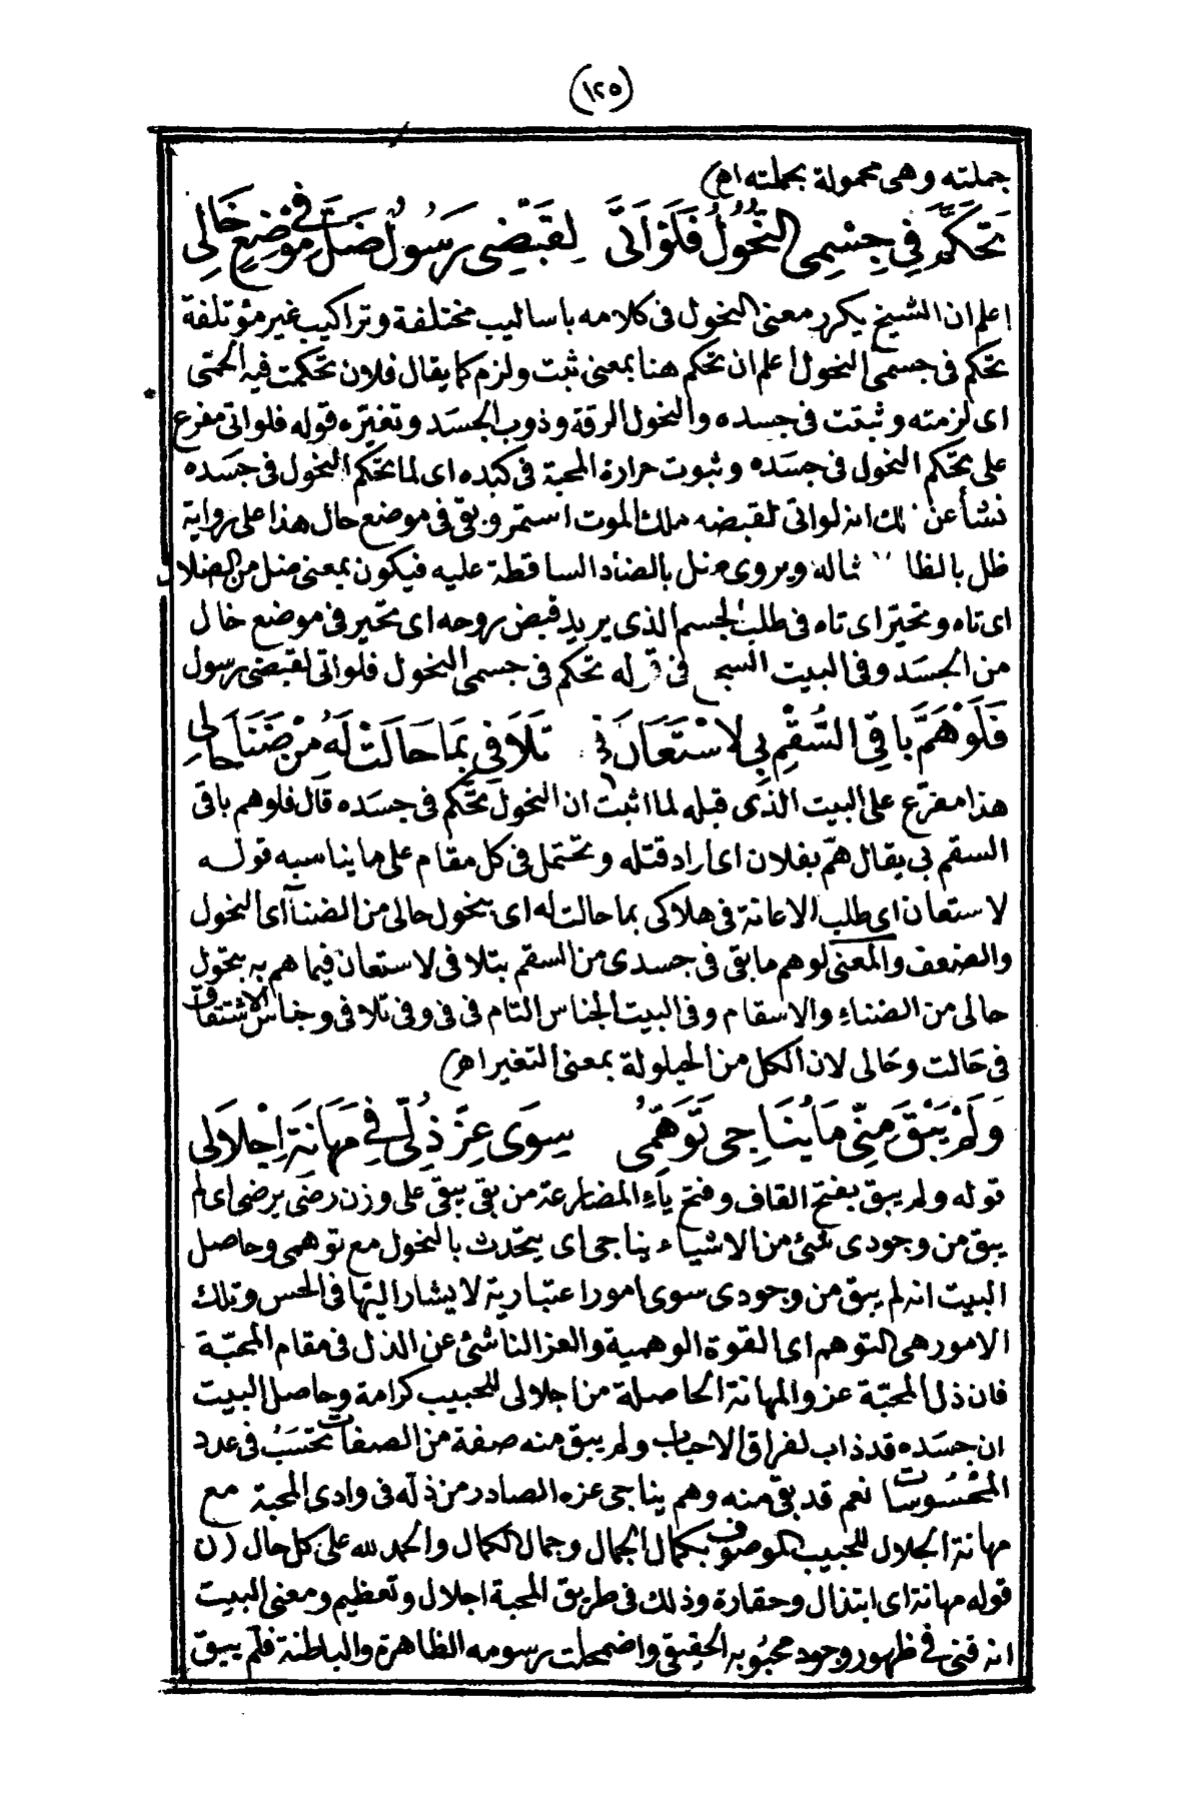 (١٢٥)
جملته وهى محمولة بجملته اه)
تَحَكَّمَ فِي جِسْمِى النُّحُولُ فَلَوْ اَتَى لِقَبْضِى رَسُولٌ ضَلَّ فِى مَوْضِعٍ خَالِى
اعلم ان الشيخ يكرر معنى النحول فى كلامه باساليب مختلفة وتراكيب غير مؤتلفة
تحكم فى جسمى النحول اعلم ان تحكم هنا بمعنى ثبت ولزم كما يقال فلان تحكمت فيه الحمى
اى لزمته وثبتت فى جسده والنحول الرقة وذوب الجسد وتغيره قوله فلو اتى مفرع
على تحكم النحول فى جسده وثبوت حرارة المحبة فى كبده اى لما تحكم النحول فى جسده
نشأ عن لك انه لو اتى لقبضه ملك الموت استمر وبقى فى موضع حال هذا على رواية
ظل بالظا ثاله ويروى ضل بالضاد الساقطة عليه فيكون بمعنى ضل من الضلال
اى تاه وتحير اى تاه فى طلب الجسم الذى يريد قبض روحه اى تحير فى موضع خال
من الجسد وفى البيت السج فى قوله تحكم فى جسمى النحول فلو اتى لقبضى رسول
فَلَوْ هَمَّ بَاقِى السُّقْمِ بِى لَاسْتَعَانَ فِى تَلَافِى بِمَا حَالَتْ لَهُ مِنْ ضَنَا حَالِى
هذا مفرع على البيت الذى قبله لما اثبت ان النحول تحكم فى جسده قال فلو هم باقى
السقم بى يقال هم بفلان اى اراد قتله ويحتمل فى كل مقام على ما يناسبه قوله
لاستعان اى طلب الاعانة فى هلاكى بما حالت له اى بتحول حالى من الضنا اى النحول
والضعف والمعنى لو هم ما بقى فى جسدى من السقم بتلافى لاستعان فيما هم به بتحول
حالى من الضناء والاسقام وفى البيت الجناس التام فى فى وفى تلافى وجناس الاشتقاق
فى حالت وحالى لان الكل من الحيلولة بمعنى التغير اه)
وَلَمْ يَبْقَ مِنِّى مَا يُنَاجِى تَوَهُّمِى سِوَى عِزِّ ذُلٍّ فِى مَهَانَةِ اِجْلَالِى
قوله ولم يبق بفتح القاف وفتح ياء المضارعة من بقى يبقى على وزن رضى يرضى اى لم
يبق من وجودى شئ من الاشياء يناجى اى يتحدث بالنحول مع توهمى وحاصل
البيت انه لم يبق من وجودى سوى امور اعتبارية لا يشار اليها فى الحس وتلك
الامور هى التوهم اى القوة الوهمية والعز الناشئ عن الذل فى مقام المحبة
فان ذل المحبة عز والمهانة الحاصلة من اجلالى للحبيب كرامة وحاصل البيت
ان جسده قد ذاب لفراق الاحباب ولم يبق منه صفة من الصفات تحتسب فى عدد
المحسوسات نعم قد بقى منه وهم يناجى عزه الصادر من ذله فى وادى المحبة مع
مهانة الجلال للحبيب الموصوف بكمال الجمال وجمال الكمال والحمد لله على كل حال (ن
قوله مهانة اى ابتذال وحقارة وذلك فى طريق المحبة اجلال وتعظيم ومعنى البيت
انه فنى فى ظهور وجود محبوبه الحقيقى واضمحلت رسومه الظاهرة والباطنة فلم يبق